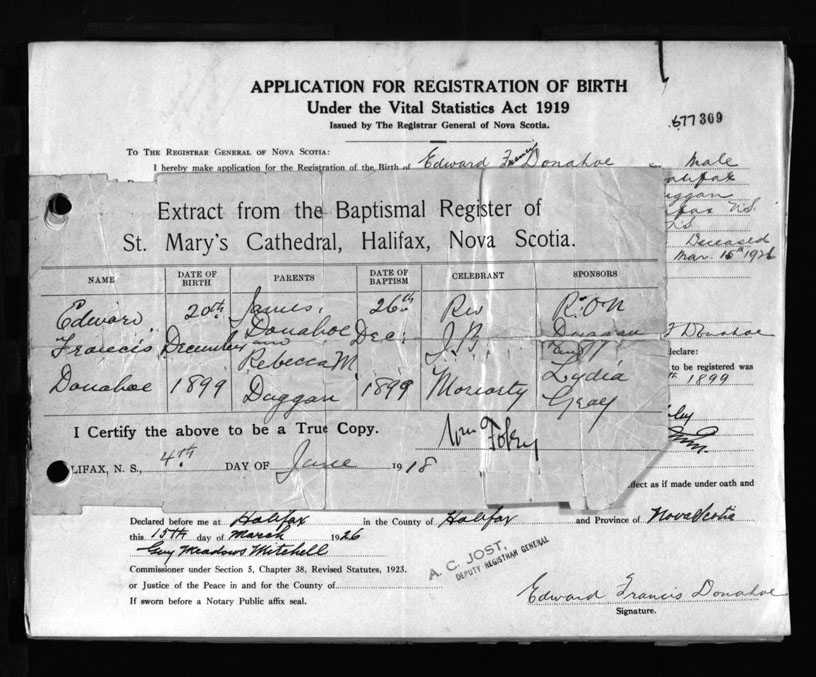 APPLICATION FOR REGISTRATION OF BIRTH
Under the Vital Statistics Act 1919
Issued by The Registrar General of Nova Scotia.
677309
TO THE REGISTRAR GENERAL OF NOVA SCOTIA:
I hereby make application for the Registration of the Birth of Edward Francis Donahoe Male
alifax
uggan
ifax N.S.
N.S.
Deceased
Mar. 15th 1926
Extract from the Baptismal Register of
St. Mary's Cathedral, Halifax, Nova Scotia.
NAME DATE OF BIRTH PARENTS DATE OF BAPTISM CELEBRANT SPONSORS
Edward 20th James 26th Rev R. O'N
Francis December Donahoe and Dec. J. B. Duggan
Rebecca M. Lydia
Donahoe 1899 Duggan 1899 Moriarty Gray
F Donahoe
declare:
to be registered was
th 1899
I Certify the above to be a True Copy.
Wm Foley
ALIFAX, N. S., 4th DAY OF June 1918
ffect as if made under oath and
Declared before me at Halifax in the County of Halifax and Province of Nova Scotia
this 15th day of March 1926
Guy Meadows Mitchell
Commissioner under Section 5, Chapter 38, Revised Statutes, 1923.
A. C. JOST,
DEPUTY REGISTRAR GENERAL
or Justice of the Peace in and for the County of
Edward Francis Donahoe
If sworn before a Notary Public affix seal.
Signature.